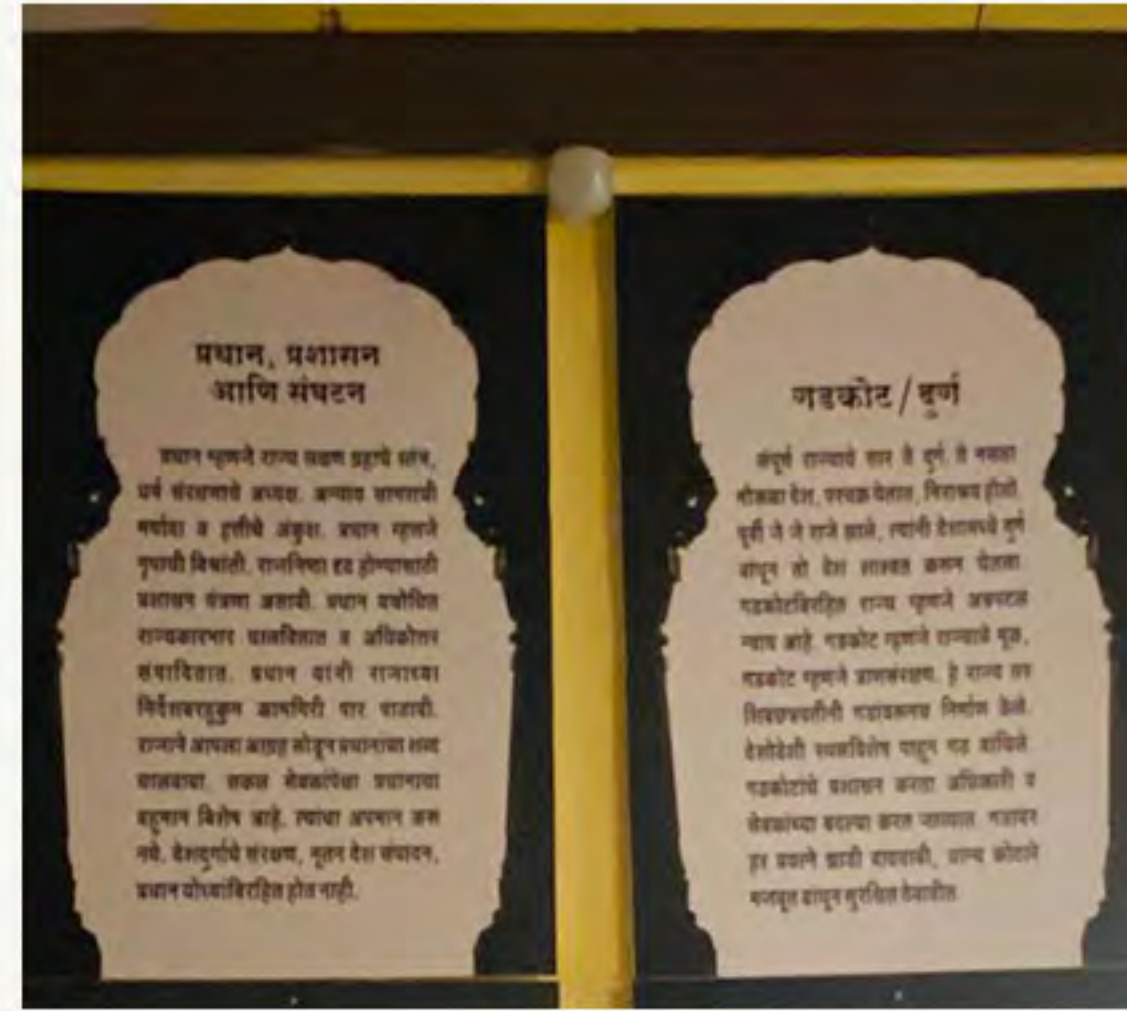 प्रधान, प्रशासन
आणि संघटन
प्रधान म्हणजे राज्य सक्षण ग्रहाचे स्तंभ,
धर्म संरक्षणाचे अध्यक्ष. अन्याय सागराची
मर्यादा व हत्तीचे अंकुश. प्रधान म्हणजे
नृपाची विश्रांती. राजनिष्ठा दृढ होण्यासाठी
प्रशासन यंत्रणा असावी. प्रधान यथोचित
राज्यकारभार चालवितात व अधिकोत्तर
संपादितात. प्रधान यांनी राजाच्या
निर्देशबरहुकुम कामगिरी पार पाडावी.
राजाने आपला आग्रह सोडून प्रधानाचा शब्द
चालवावा. सकल सेवकांपेक्षा प्रधानाचा
बहुमान विशेष आहे. त्यांचा अपमान करू
नये. देशदुर्गाचे संरक्षण, नूतन देश संपादन,
प्रधान योध्यांविरहित होत नाही.
गडकोट / दुर्ग
संपूर्ण राज्याचे सार ते दुर्ग. ते नसता
मोकळा देश, परचक्र येतात, निराश्रय होतो.
पूर्वी जे जे राजे झाले, त्यांनी देशामध्ये दुर्ग
बांधून तो देश शाश्वत करून घेतला.
गडकोटविरहित राज्य म्हणजे अभ्रपटल
न्याय आहे. गडकोट म्हणजे राज्याचे मूळ,
गडकोट म्हणजे प्राणसंरक्षण. हे राज्य तर
शिवछत्रपतींनी गडावरूनच निर्माण केले.
देशोदेशी स्थळविशेष पाहून गड बांधिले.
गडकोटांचे प्रशासन करता अधिकारी व
सेवकांच्या बदल्या करत जाव्यात. गडावर
हर प्रयत्ने झाडी वाढवावी, धान्य कोठारे
मजबूत बांधून सुरक्षित ठेवावीत.